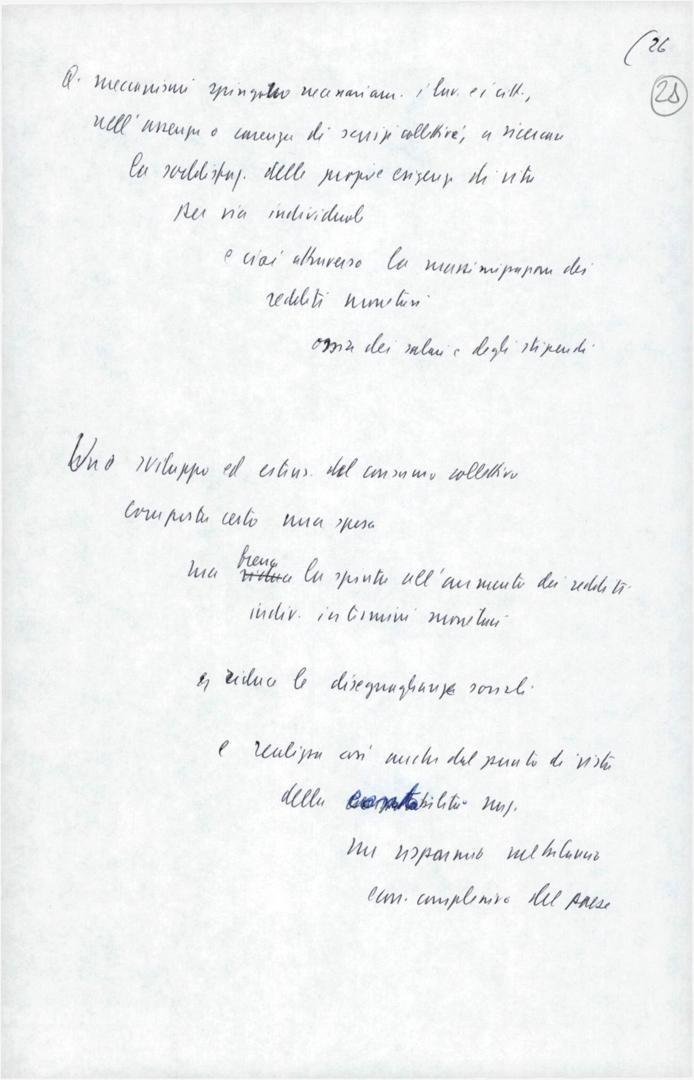 (26
28
Q. meccanismi spingono necessariam. i lav. e i citt.,
nell'assenza o carenza di servizi collettivi, a ricercare
la soddisfaz. delle proprie esigenze di vita
per via individuale
e cioè attraverso la massimizzazione dei
redditi monetari
ossia dei salari e degli stipendi
Uno sviluppo ed estens. del consumo collettivo
comporta certo una spesa
frena
ma riduce la spinta all'aumento dei redditi
indiv. in termini monetari
riduce le diseguaglianze sociali
e realizza così anche dal punto di vista
della contabilità naz.
un risparmio nel bilancio
econ. complessivo del paese